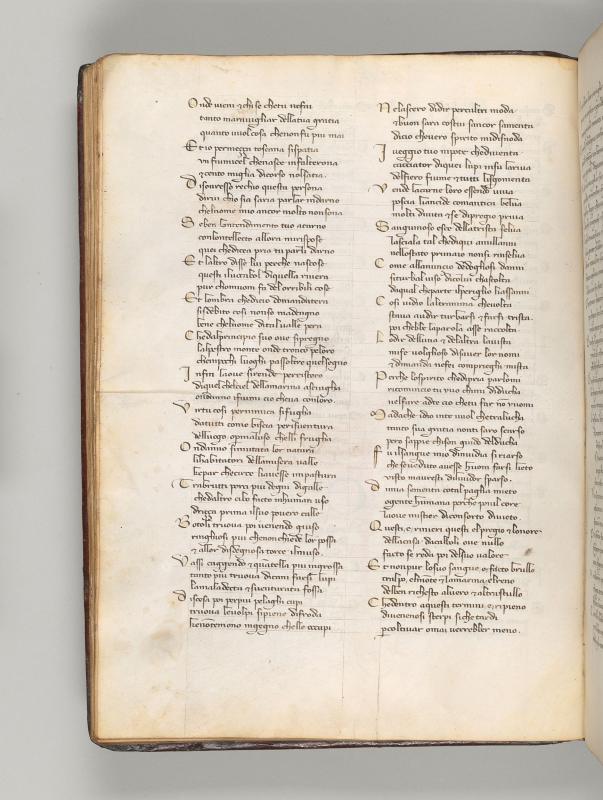 Onde vieni & chi se chetu nefai
tanto maravigliar dellatua gratia
quanto vuol cosa chenonfu piu mai
Et io permecço toscana sispatia
un fiumicel chenasce infalterona
& cento miglia dicorso nolsatia.
Disovresso rechio questa persona
dirvi chio sia saria parlar indarno
chelnome mio ancor molto nonsona
Se ben lontendimento tuo acarno
conlontellecto allora mirispose
quei chedicea pria tu parli darno
Et laltro disse lui perche nascose
questi iluocabol diquella rivera
pur chomuom fa delorribili cose
Et lombra chedicio domandatera
sisdebito cosi nonso madengno
bene chelnome dital valle pera
Chedalprincipio suo ove sipregno
lalpestro monte onde tronco peloro
chempochi luoghi passoltre quelsegno
Infin laove sirende perristoro
diquel chelciel dellamarina asciugha
ondanno ifiumi cio cheva conloro
Virtu cosi pernimica sifugha
datutti come biscia persventura
delluogo opmaluso chelli frugha
Ondanno simutata lor natura
lihabitatori dellamisera valle
kepar checirce liavesse impastura
Trabrutti porci piu degni digalle
chedaltro cibo facto inhuman uso
driçça prima ilsuo povero calle
Botoli truova poi venendo giuso
ringhiosi piu chenonchiede lor possa
& allor disdegnosa torce ilmuso.
Vassi caggendo & quantella piu ingrossa
tanto piu truova dicani farsi lupi
lamaladecta & sventurata fossa
Discesa poi perpiu pelaghi cupi
truova levolpi sipiene difroda
kenontemono ingegno chelle occupi
Ne lascero didir perchaltri moda
& buon sara costui sancor samenta
dicio chevero spirito midisnoda
I veggio tuo nipote chediventa
cacciator diquei lupi insu lariva
delfiero fiume & tutti lisgomenta
Vende lacarne loro essendo viva
poscia lancide comantica belva
molti divita & se dipregio priva
Sanguinoso esce dellatrista selva
lasciala tal chediqui amillanni
nellostato primaio nonsi rinselva
Come allannuncio dedogliosi danni
siturbal viso dicolui chascolta
daqual cheparte ilperiglio lassanni
Cosi vidio laltranima chevolta
stava audir turbarsi & farsi trista.
poi cheble laparola asse raccolta.
Lo dir delluna & dellaltra lavista
mife voglioso disaver lor nomi
& dimanda nefei conprieghi mista
Perche lospirito chedipria parlomi
ricomincio tu vuo chimi diducha
nelfare adte cio chetu far no vuomi
Madache idio inte vuol chetralucha
tanto sua gratia nonti saro scarso
pero sappie chison guido delducha
Fu ilsangue mio dinvidia siriarso
che seveduto avesse huom farsi lieto
visto mavresti dilividor sparso.
Dimia sementa cotal paglia mieto
ogente humana perche ponil core
laove mistier diconsorto divieto.
Questi e rinieri questi elpregio & lonore
dellacasa dacalboli ove nullo
facto se reda poi delsuo valore
Et nonpur losuo sangue e facto brullo
tralpo, elmonte & lamarina elreno
delben richesto alvero & altrastullo
Chedentro aquesti termini e ripieno
divenenosi sterpi siche tardi
percoltivar omai verrebber meno.